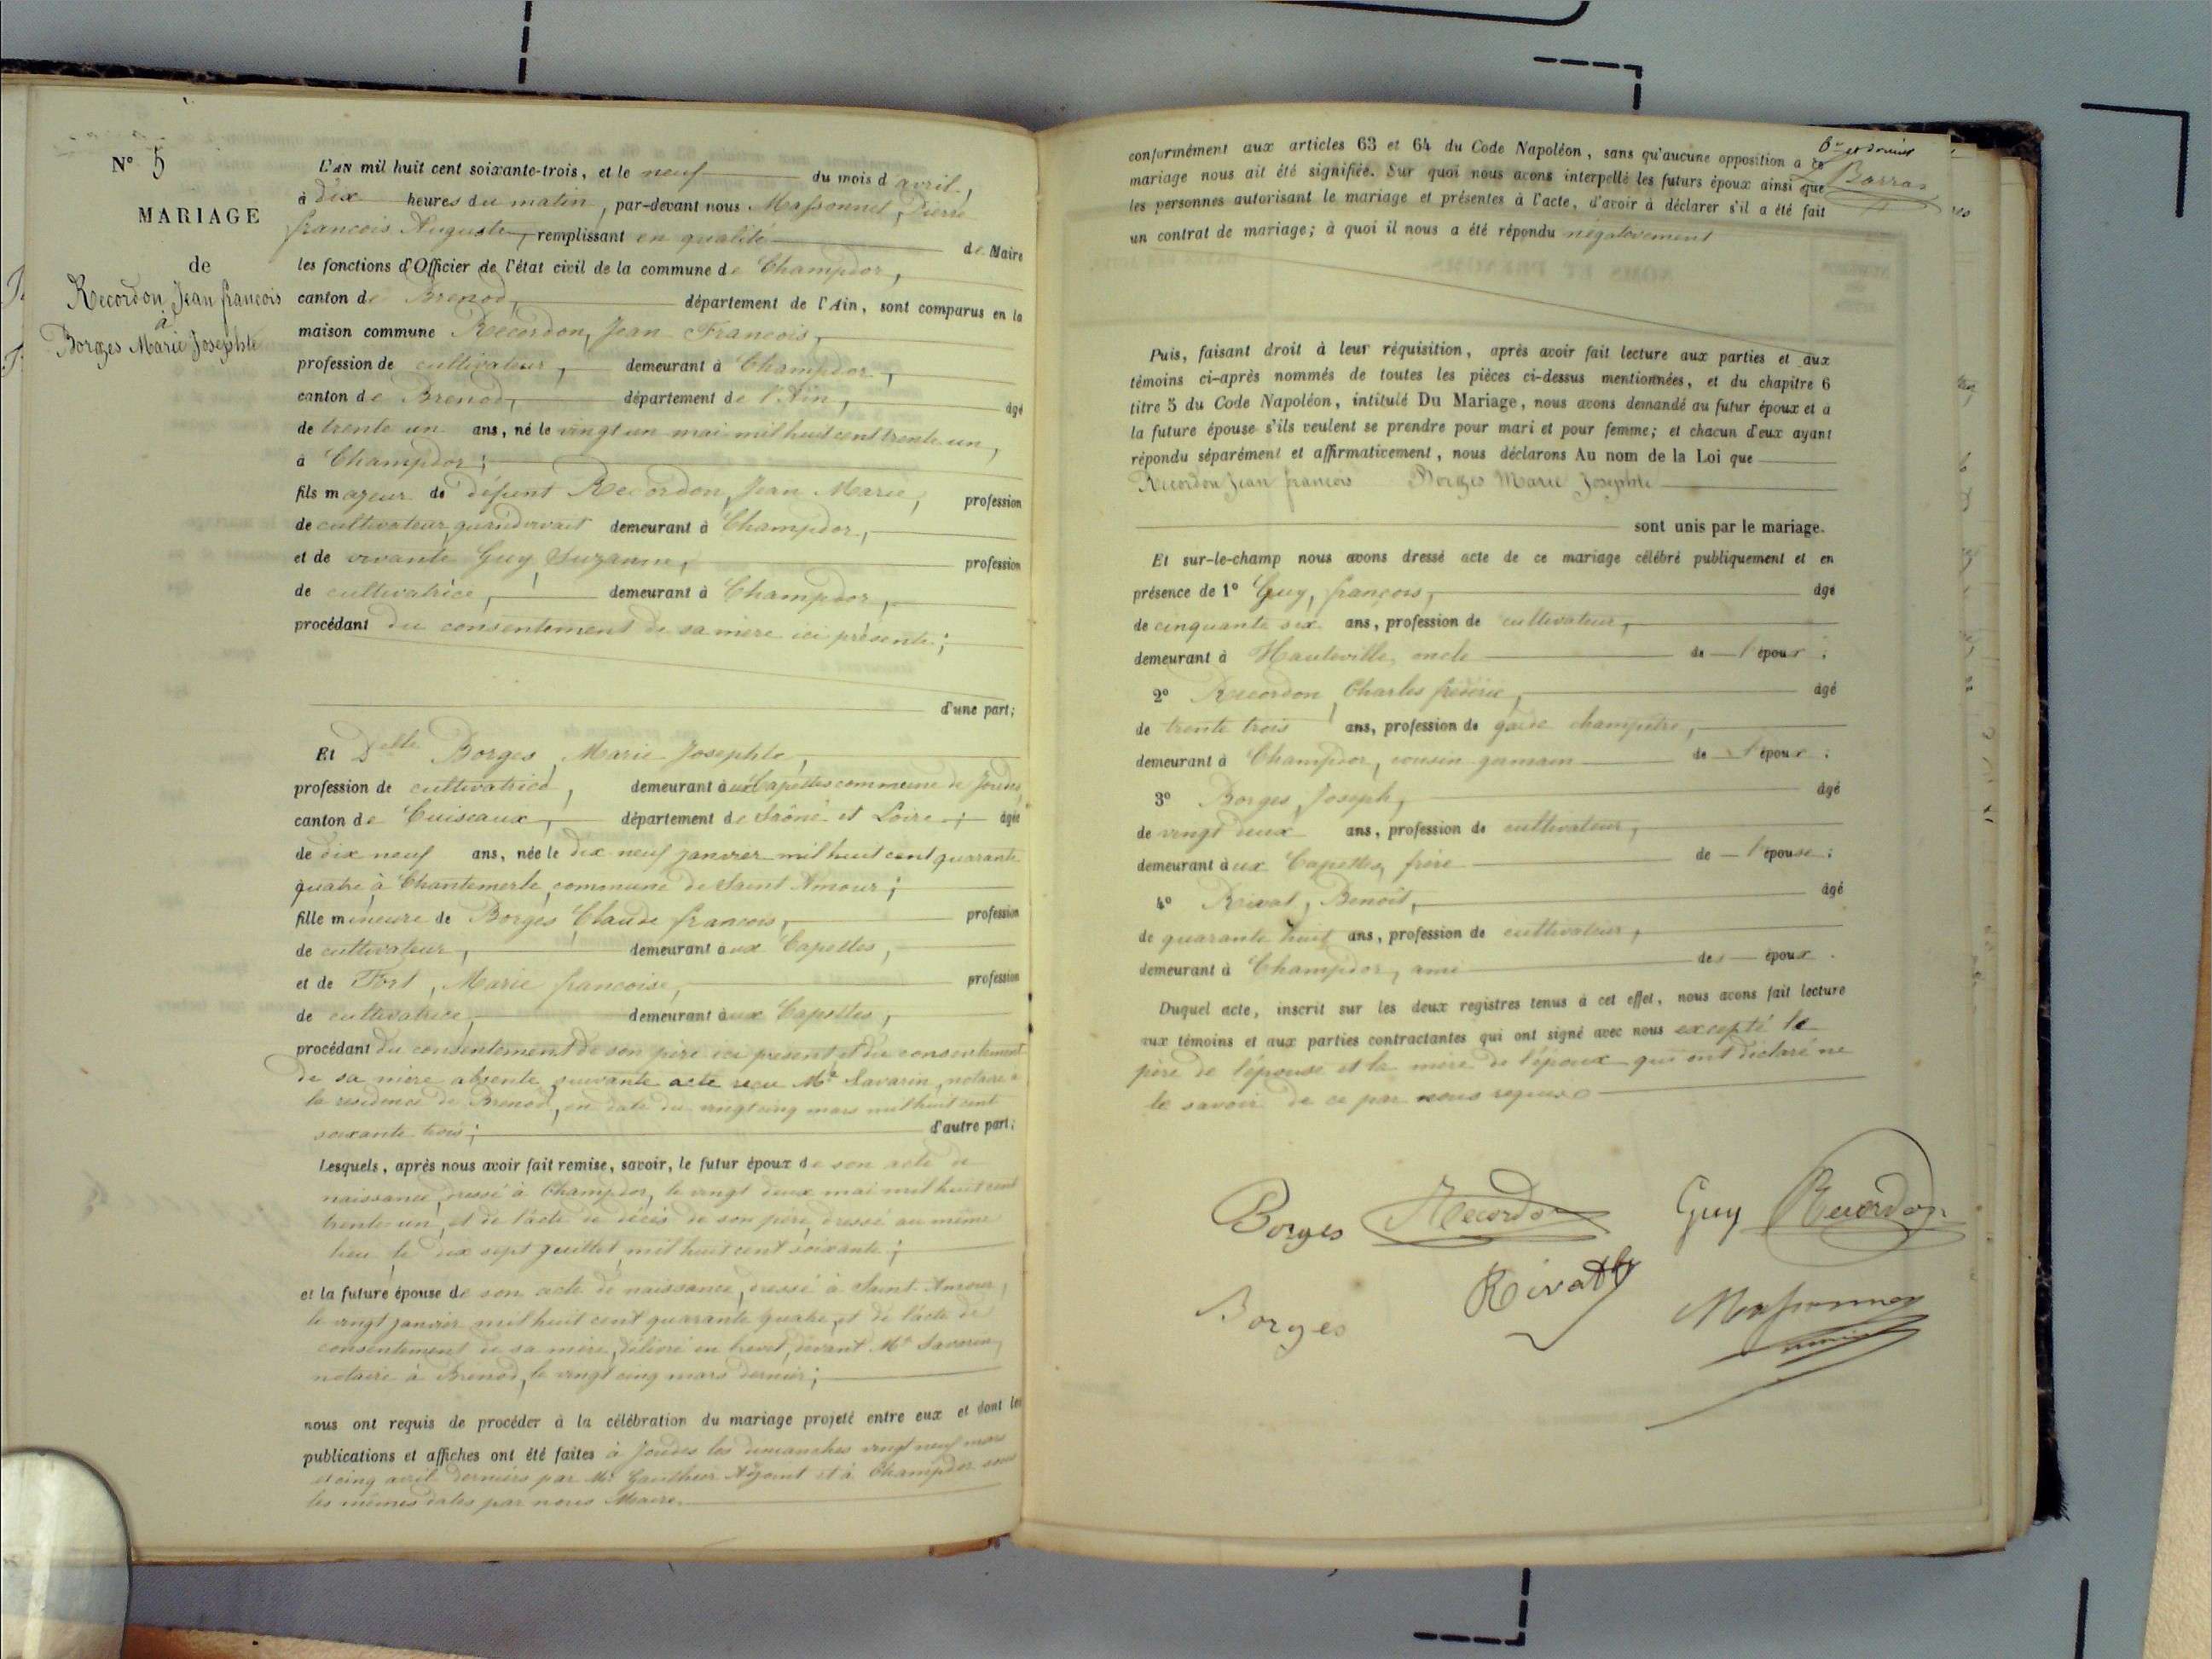 N° 5
MARIAGE
de
Recordon Jean francois
à
Borges Marie Josephte
L'AN mil huit cent soixante-trois, et le neuf du mois d avril,
à dix heures du matin, par-devant nous Massonnet, Pierre
francois Auguste, remplissant en qualité de Maire
les fonctions d'Officier de l'état civil de la commune de Champdor,
canton de Brenod, département de l'Ain, sont comparus en la
maison commune Recordon, Jean Francois,
profession de cultivateur, demeurant à Champdor,
canton de Brenod, département de l'Ain, âgé
de trente un ans, né le vingt un mai mil huit cent trente un,
à Champdor;
fils majeur de défunt Recordon, Jean Marie, profession
de cultivateur quand vivait demeurant à Champdor,
et de vivante Guy Suzanne, profession
de cultivatrice, demeurant à Champdor,
procédant du consentement de sa mère ici présente;
d'une part;
Et Delle Borges, Marie Josephte,
profession de cultivatrice, demeurant aux Capettes commune de Joudes,
canton de Cuiseaux, département de Saône et Loire; âgée
de dix neuf ans, née le dix neuf janvier mil huit cent quarante
quatre à Chantemerle, commune de Saint Amour;
fille mineure de Borges Claude francois, profession
de cultivateur, demeurant aux Capettes,
et de Fort, Marie francoise, profession
de cultivatrice, demeurant aux Capettes,
procédant du consentement de son père ici présent et du consentement
de sa mère absente, suivante acte reçu Me Savarin, notaire à
la résidence de Brenod, en date du vingt cinq mars mil huit cent
soixante trois; d'autre part;
Lesquels, après nous avoir fait remise, savoir, le futur époux de son acte de
naissance, dressé à Champdor, le vingt deux mai mil huit cent
trente-un, et de l'acte de décès de son père, dressé au même
lieu, le dix sept juillet mil huit cent soixante;
et la future épouse de son acte de naissance, dressé à Saint-Amour,
le vingt janvier mil huit cent quarante quatre, et de l'acte de
consentement de sa mère, délivré en brevet, devant Me Savarin,
notaire à Brenod, le vingt cinq mars dernier;
nous ont requis de procéder à la célébration du mariage projeté entre eux et dont les
publications et affiches ont été faites à Joudes les dimanches vingt neuf mars
et cinq avril derniers par Mr Gauthier Adjoint et à Champdor sous
les mêmes dates par nous Maire.
conformément aux articles 63 et 64 du Code Napoléon, sans qu'aucune opposition à ce
mariage nous ait été signifiée. Sur quoi nous avons interpellé les futurs époux ainsi que
les personnes autorisant le mariage et présentes à l'acte, d'avoir à déclarer s'il a été fait
un contrat de mariage; à quoi il nous a été répondu négativement
6e et dernier
Barras
Puis, faisant droit à leur réquisition, après avoir fait lecture aux parties et aux
témoins ci-après nommés de toutes les pièces ci-dessus mentionnées, et du chapitre 6
titre 5 du Code Napoléon, intitulé Du Mariage, nous avons demandé au futur époux et à
la future épouse s'ils veulent se prendre pour mari et pour femme; et chacun d'eux ayant
répondu séparément et affirmativement, nous déclarons Au nom de la Loi que
Recordon Jean francois Borges Marie Josephte
sont unis par le mariage.
Et sur-le-champ nous avons dressé acte de ce mariage célébré publiquement et en
présence de 1° Guy, françois, âgé
de cinquante six ans, profession de cultivateur,
demeurant à Hauteville, oncle de l'époux;
2° Recordon Charles frédéric, âgé
de trente trois ans, profession de garde champêtre,
demeurant à Champdor, cousin germain de l'époux;
3° Borges, Joseph, âgé
de vingt deux ans, profession de cultivateur,
demeurant aux Capettes, frère de l'épouse;
4° Rivat, Benoît, âgé
de quarante huit ans, profession de cultivateur,
demeurant à Champdor, ami des époux.
Duquel acte, inscrit sur les deux registres tenus à cet effet, nous avons fait lecture
aux témoins et aux parties contractantes qui ont signé avec nous excepté le
père de l'épouse et la mère de l'époux qui ont déclaré ne
le savoir de ce par nous requis.
Borges Recordon Guy Recordon
Borges Rivat Massonnet